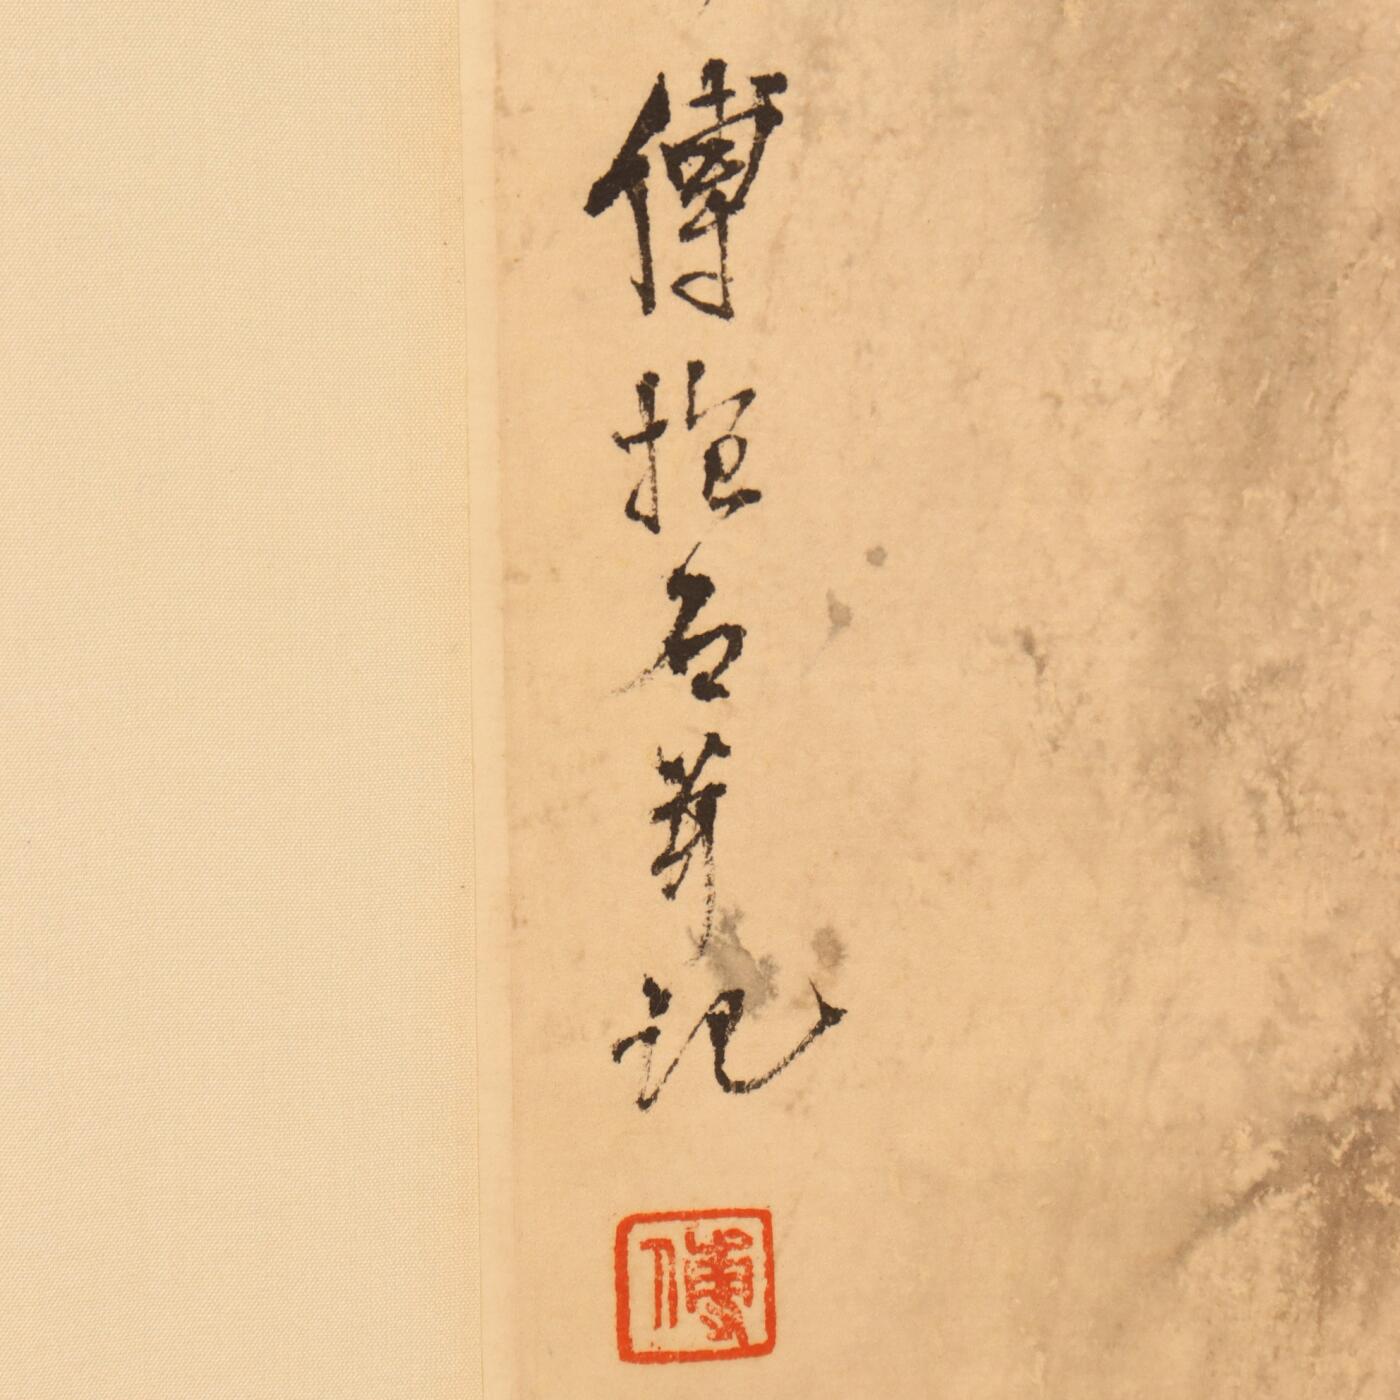 傅抱石並記
傅